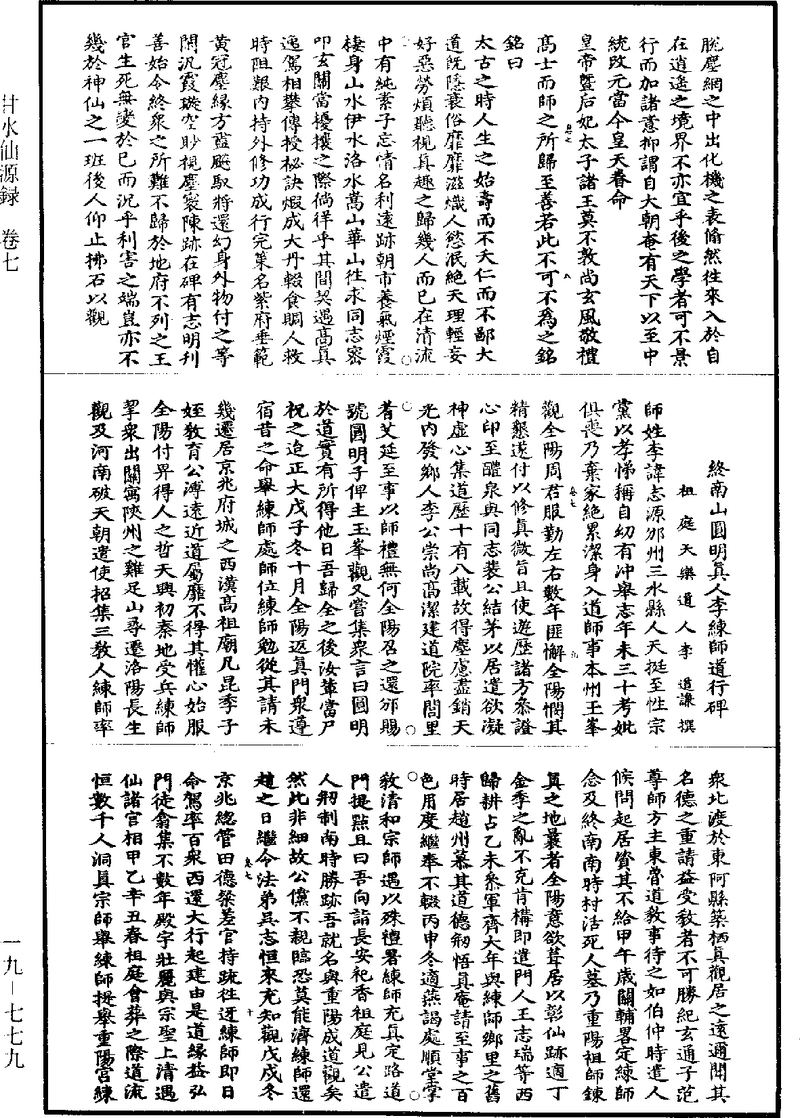 脫塵網之中出化機之表翛然往來入於自
在逍遙之境界不亦宜乎後之學者可不景
行而加諸意抑謂自大朝奄有天下以至中
統改元當今皇天眷命
皇帝暨后妃太子諸王莫不敦尚玄風敬禮
高士而師之所歸至善若此不可不為之銘
銘曰
太古之時人生之始壽而不夭仁而不鄙大
道既隱衰俗靡靡滋熾人慾泯絕天理輕妄
好惡勞煩聽視真趣之歸幾人而已在清流
中有純素子忘情名利遠跡朝市養氣煙霞
棲身山水伊水洛水嵩山華山往求同志密
叩玄關當擾攘之際倘徉乎其間契遇高真
逸駕相攀傳授秘訣煅成大丹輟食賙人救
時阻艱內持外修功成行完策名紫府垂範
黃冠塵緣方蓋飈馭將還幻身外物付之等
閑汎霞璇空眇視塵寰陳跡在碑有志明刊
善始令終眾之所難不歸於地府不列之王
官生死無變於已而況乎利害之端豈亦不
幾於神仙之一班後人仰止拂石以觀
終南山圓明真人李練師道行碑
祖庭天樂道人李道謙撰
師姓李諱志源邠州三水縣人天挺至性宗
黨以孝悌稱自幼有冲舉志年未三十考妣
俱喪乃棄家絕累潔身入道師事本州玉峯
觀全陽周君服勤左右數年匪懈全陽憫其
精懇遂付以修真微旨且使遊歷諸方參證
心印至醴泉與同志裴公結茅以居遣欲凝
神虛心集道歷十有八載故得塵慮盡銷天
光內發鄉人李公崇尚高潔建道院率閭里
耆艾延至事以師禮無何全陽召之還邠賜
號圓明子俾主玉峯觀又嘗集眾言曰圓明
於道實有所得他日吾歸全之後汝輩當尸
祝之迨正大戊子冬十月全陽返真門眾遵
宿昔之命舉練師處師位練師勉從其請未
幾遷居京兆府城之西漢高祖廟凡昆季子
姪教育公溥遠近道屬靡不得其懽心始服
全陽付畀得人之哲天興初秦地受兵練師
挈眾出關寓陝州之雞足山尋遷洛陽長生
觀及河南破天朝遣使招集三教人練師率
眾北渡於東阿縣築栖真觀居之遠邇聞其
名德之重請益受教者不可勝紀玄通子范
尊師方主東魯道教事待之如伯仲時遣人
候問起居資其不給甲午歲關輔畧定練師
念及終南南時村活死人墓乃重陽祖師鍊
真之地曩者全陽意欲葺居以彰仙跡適丁
金季之亂不克肯構即遣門人王志瑞等西
歸耕占乙未叅軍齊大年與練師鄉里之舊
時居趙州慕其道德剏悟真庵請至事之百
色用度繼奉不輟丙申冬適燕謁處順堂掌
教清和宗師遇以殊禮署練師充真定路道
門提點且曰吾向詣長安祀香祖庭見公遣
人剏制南時勝跡吾就名與重陽成道觀矣
然此非細故公儻不親臨恐莫能濟練師還
趙之日繼令法弟吳志恒來充知觀戊戌冬
京兆總管田德粲差官持疏往迓練師即日
命駕率百眾西還大行起建由是道緣益弘
門徒翕集不數年殿宇壯麗與宗聖上清遇
仙諸宮相甲乙辛丑春祖庭會葬之際道流
恒數千人洞真宗師舉練師提舉重陽宮練
甘水仙源録 卷七
一九—七七九